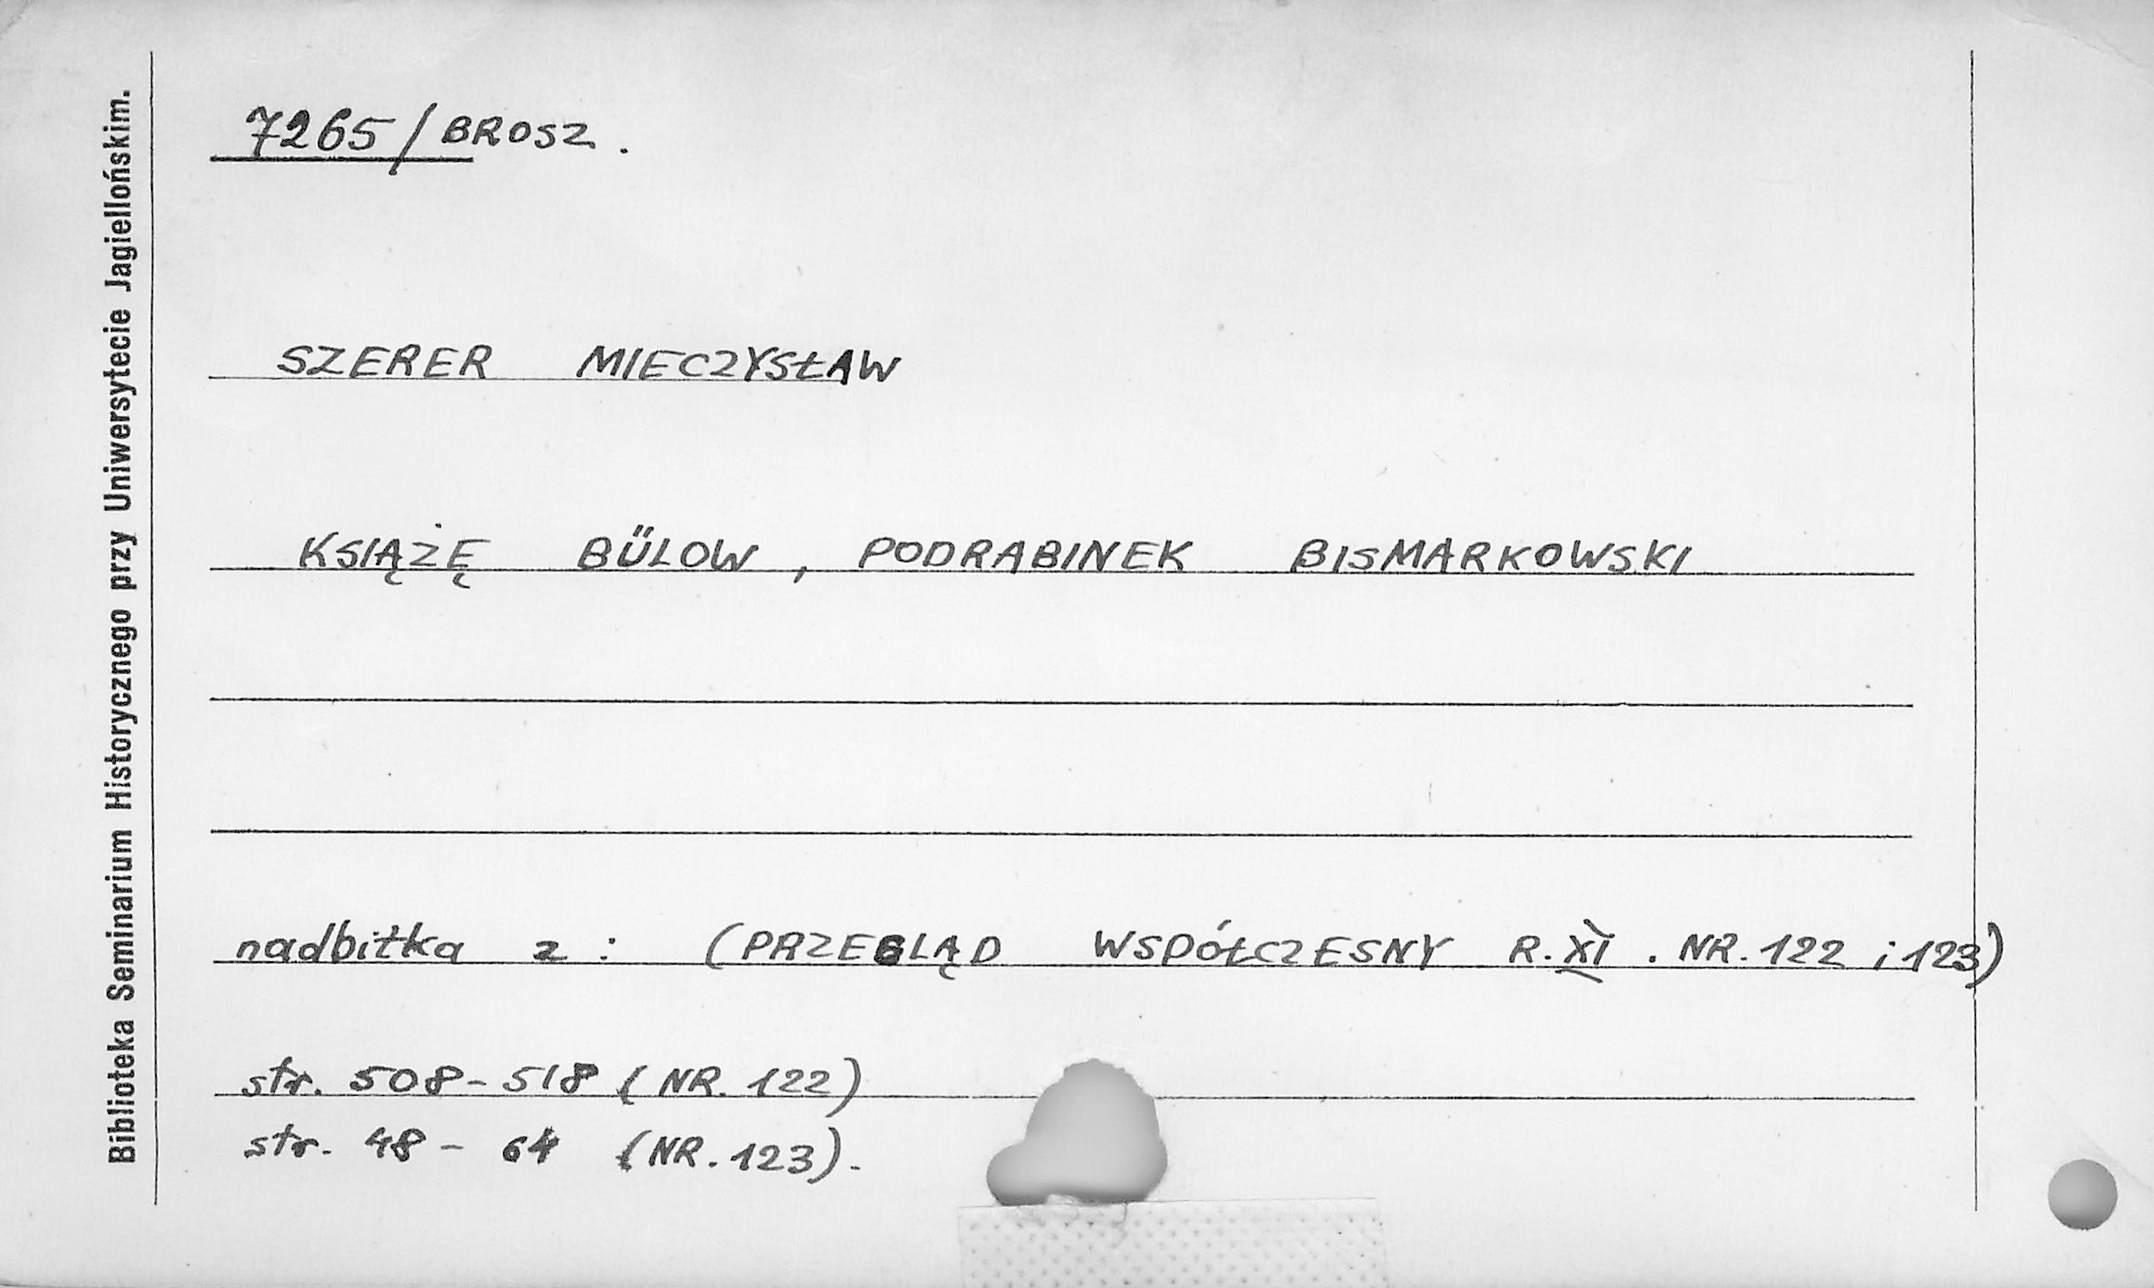 Biblioteka Seminarium Historycznego przy Uniwersytecie Jagiellońskim.
7265/BROSZ.
SZERER MIECZYSŁAW
KSIĄŻĘ BÜLOW, PODRABINEK BISMARKOWSKI
nadbitka z: (PRZEGLĄD WSPÓŁCZESNY R. XI. NR. 122 i 123)
str. 508-518 (NR. 122)
str. 48 - 64 (NR. 123).